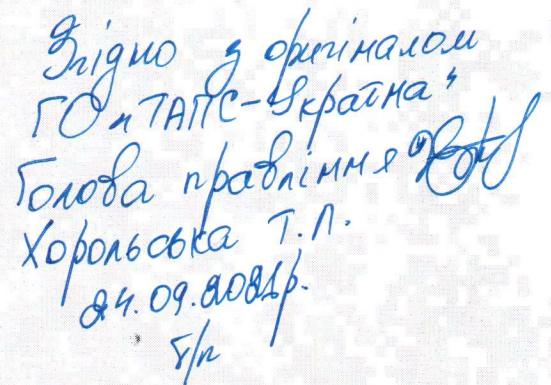 Згідно з оригіналом
ГО „ТАПС-Україна"
Голова правління
Хорольська Т.Л.
24.09.2021р.